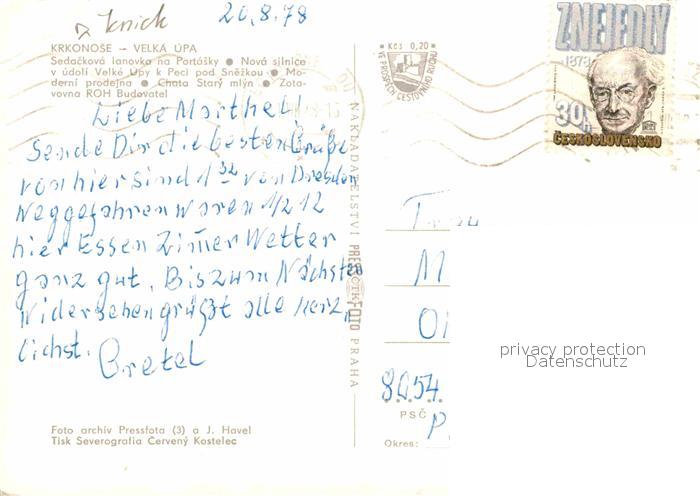 20.8.78
KRKONOŠE – VELKÁ ÚPA
Sedačková lanovka na Portášky ● Nová silnice
v údolí Velké Úpy k Peci pod Sněžkou ● Mo-
derní prodejna ● Chata Starý mlýn ● Zota-
vovna ROH Budovatel
Liebe Marthel!
Sende Dir die besten Grüße
von hier sind 1 32 von Dresden
weggefahren waren 1/2 12
hier Essen Zimer Wetter
ganz gut. Bis zum Nächsten
Widersehen grüßt alle herz
lichst.
Gretel
Foto archív Pressfota (3) a J. Havel
Tisk Severografia Červený Kostelec
NAKLADATELSTVÍ PRESSFOTO PRAHA
ČTK
Kčs 0,20
VE PROSPĚCH CESTOVNÍHO RUCHU
ZNEJEDLÝ
1878
30h
ČESKOSLOVENSKO
M
8654
PSČ
P
Okres:
privacy protection
Datenschutz